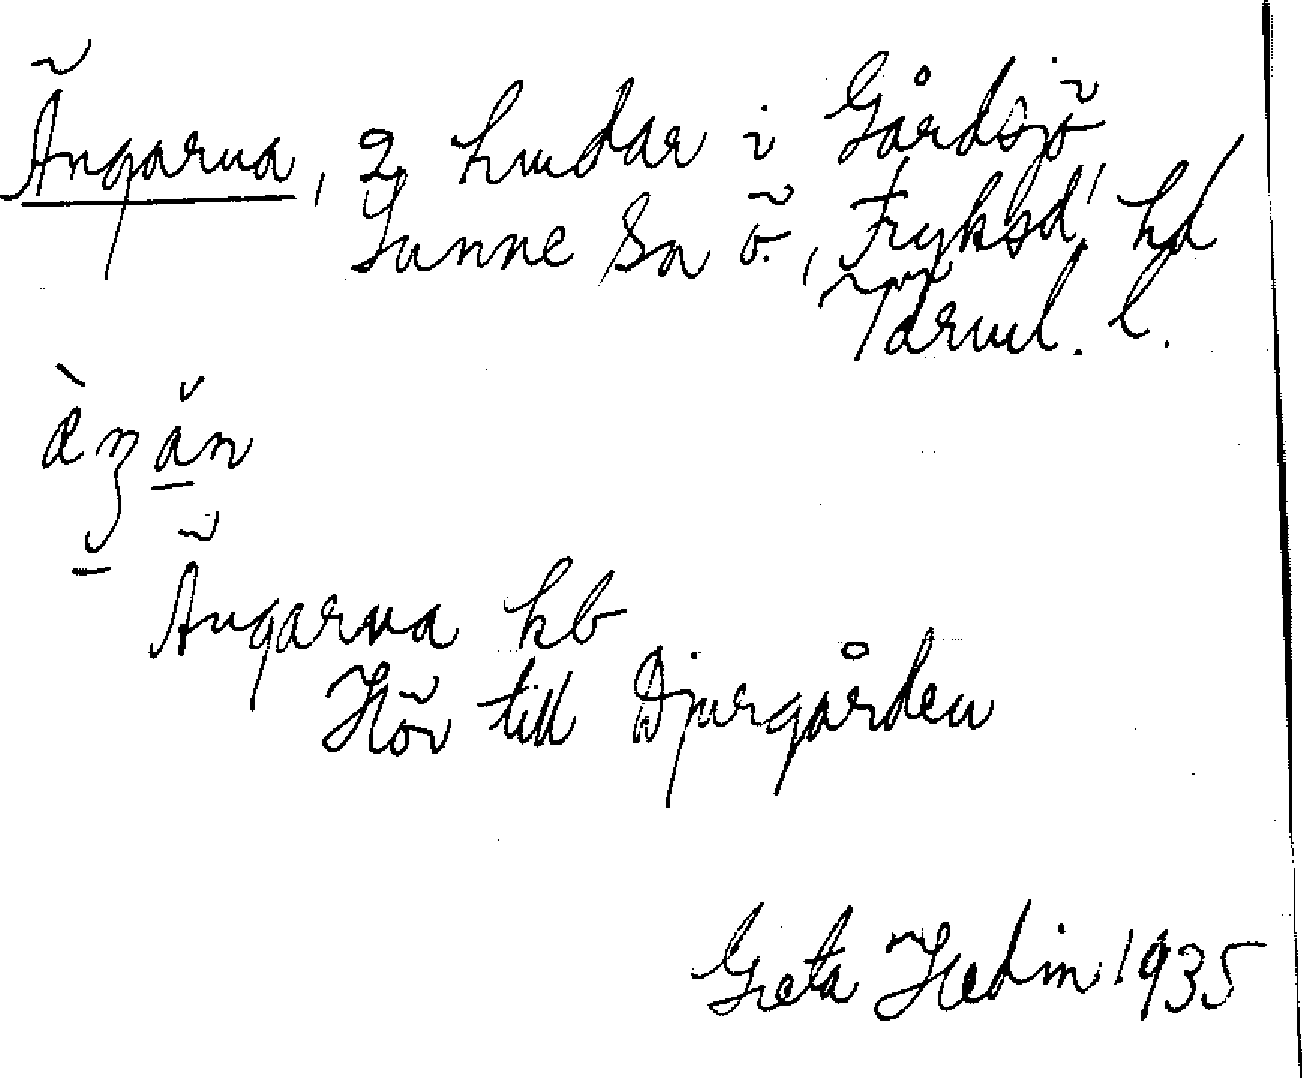 Ängarna, 2 hmdar i Gårdsjö
Sunne sn ö., Fryksd. hd
Värml. l.
Ängarna kb
Hör till Djurgården
Greta Hedin 1935